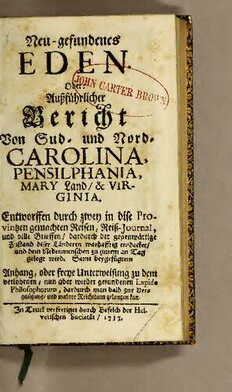 Neu-gefundenes
EDEN.
JOHN CARTER BROWN
Oder
Außführlicher
Bericht
Von Sud- und Nord-
CAROLINA,
PENSILPHANIA,
MARY Land/ & VIR-
GINIA.
Entworffen durch zwey in dise Pro-
vintzen gemachten Reisen, Reiß-Journal,
und ville Brieffen/ dardurch der gegenwärtige
Zustand diser Länderen warhafftig entdecket/
und dem Nebenmenschen zu gutem an Tag
gelegt wird. Samt beygefügtem
Anhang, oder freye Unterweisung zu dem
verlohrnen, nun aber wieder gefundenen Lapide
Philosophorum, dardurch man bald zur Ver-
gnügung/ und wahrer Reichthum gelangen kan.
In Truck verfertiget durch Befelch der Hel-
vetischen Societät / 1737.